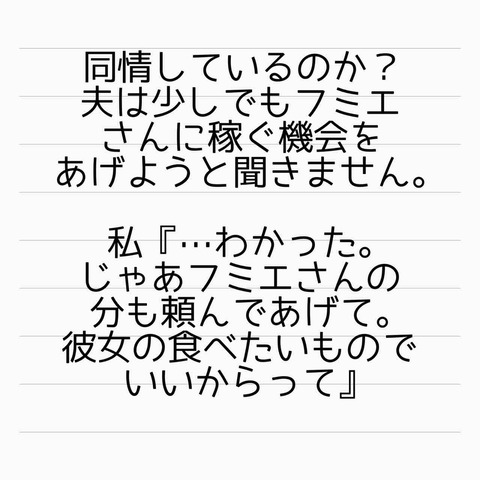 同情しているのか？
夫は少しでもフミエ
さんに稼ぐ機会を
あげようと聞きません。
私『…わかった。
じゃあフミエさんの
分も頼んであげて。
彼女の食べたいもので
いいからって』